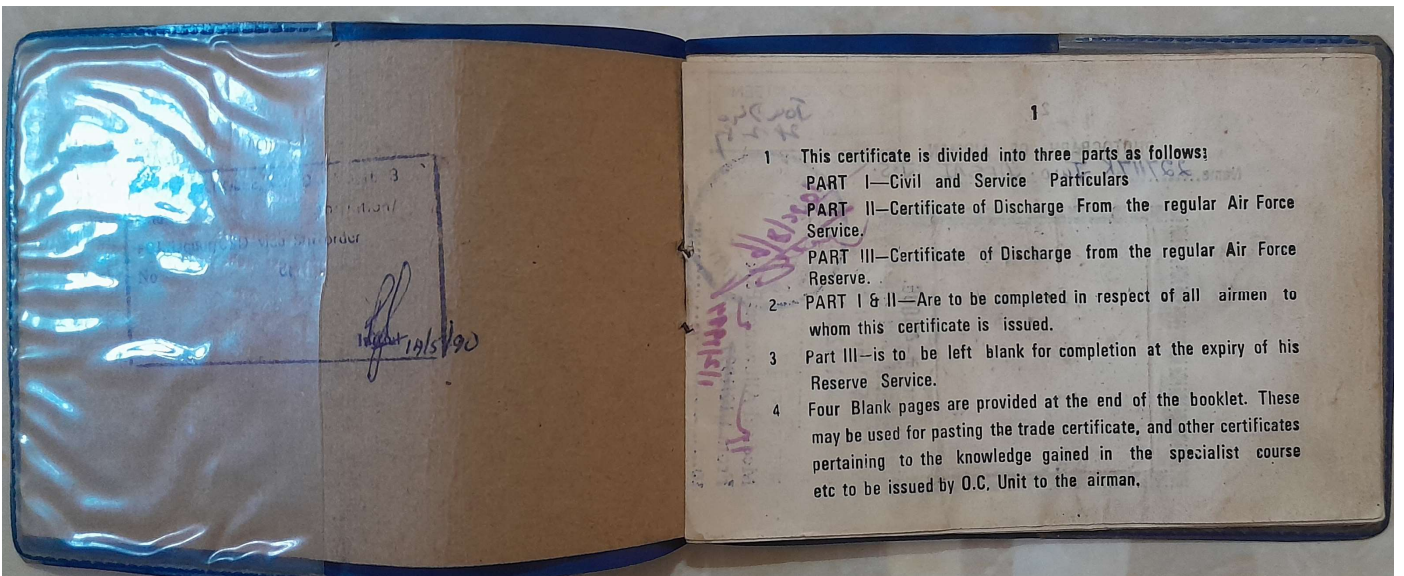 order
No
14/5/90
1
1 This certificate is divided into three parts as follows:
PART I—Civil and Service Particulars
PART II—Certificate of Discharge From the regular Air Force
Service.
PART III—Certificate of Discharge from the regular Air Force
Reserve.
2 PART I & II—Are to be completed in respect of all airmen to
whom this certificate is issued.
3 Part III—is to be left blank for completion at the expiry of his
Reserve Service.
4 Four Blank pages are provided at the end of the booklet. These
may be used for pasting the trade certificate, and other certificates
pertaining to the knowledge gained in the specialist course
etc to be issued by O.C. Unit to the airman.